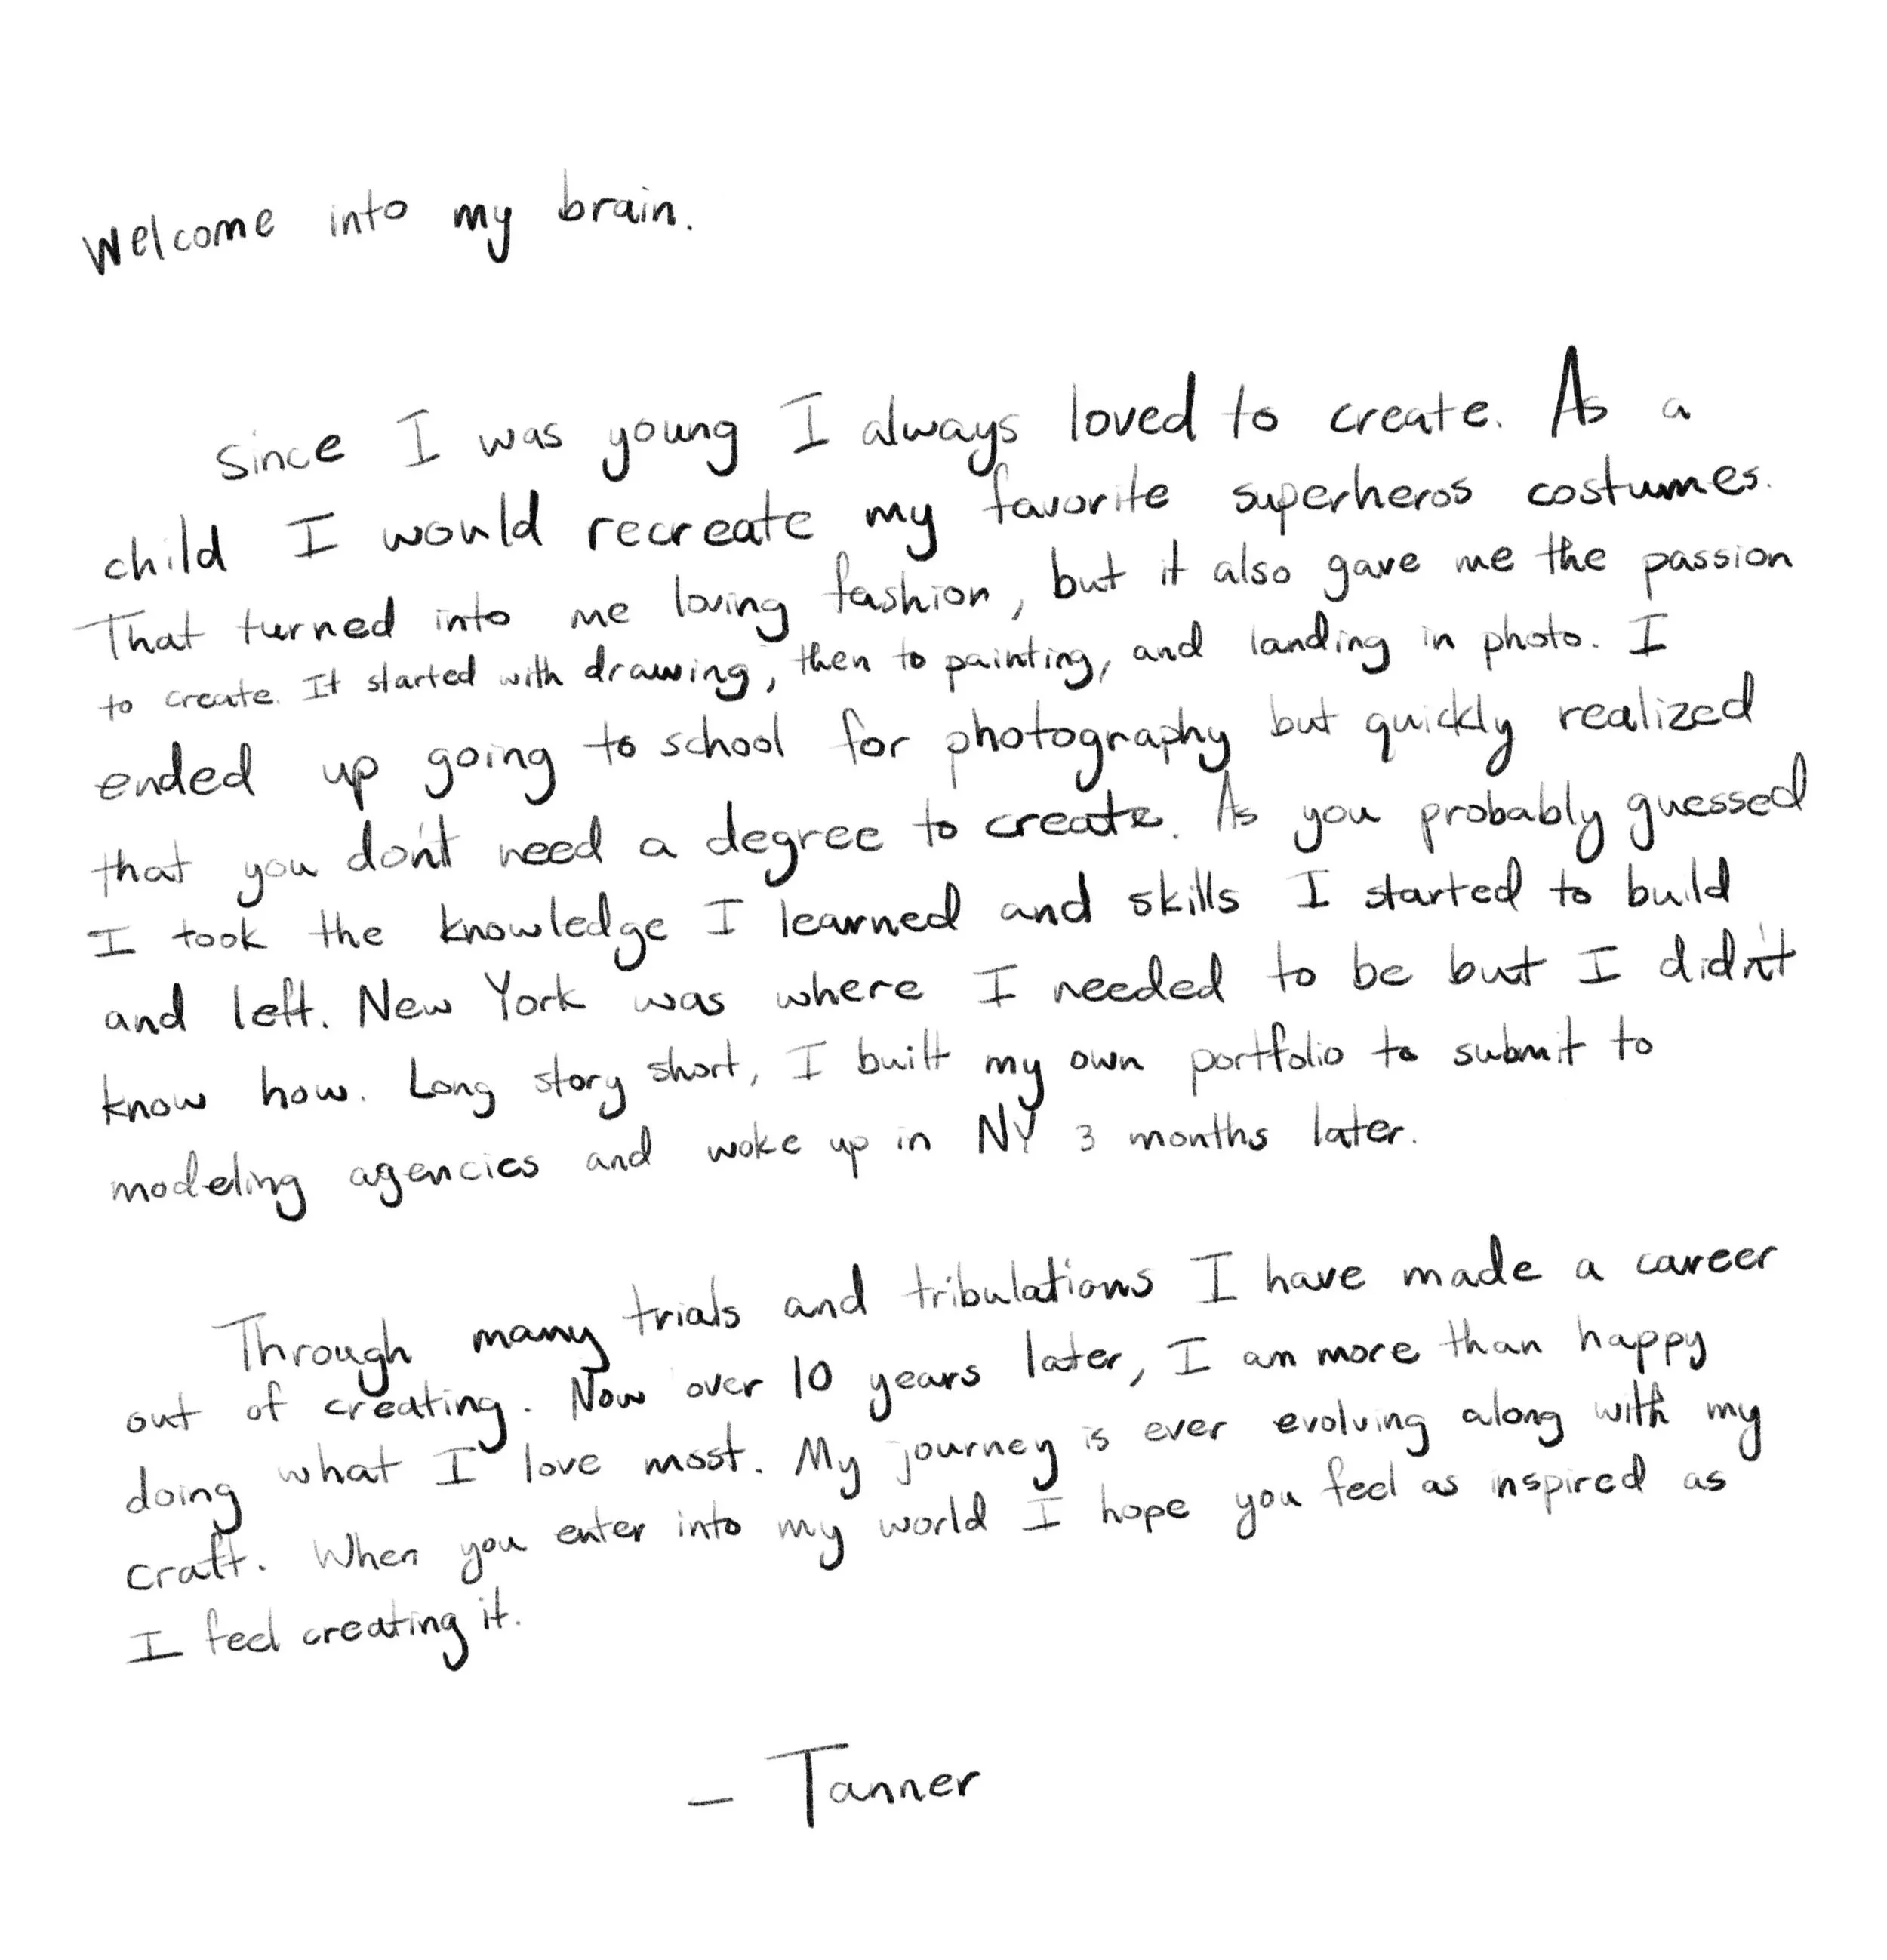 Welcome into my brain.
Since I was young I always loved to create. As a
child I would recreate my favorite superheros costumes.
That turned into me loving fashion, but it also gave me the passion
to create. It started with drawing, then to painting, and landing in photo. I
ended up going to school for photography but quickly realized
that you don't need a degree to create. As you probably guessed
I took the knowledge I learned and skills I started to build
and left. New York was where I needed to be but I didn't
know how. Long story short, I built my own portfolio to submit to
modeling agencies and woke up in NY 3 months later.
Through many trials and tribulations I have made a career
out of creating. Now over 10 years later, I am more than happy
doing what I love most. My journey is ever evolving along with my
craft. When you enter into my world I hope you feel as inspired as
I feel creating it.
- Tanner